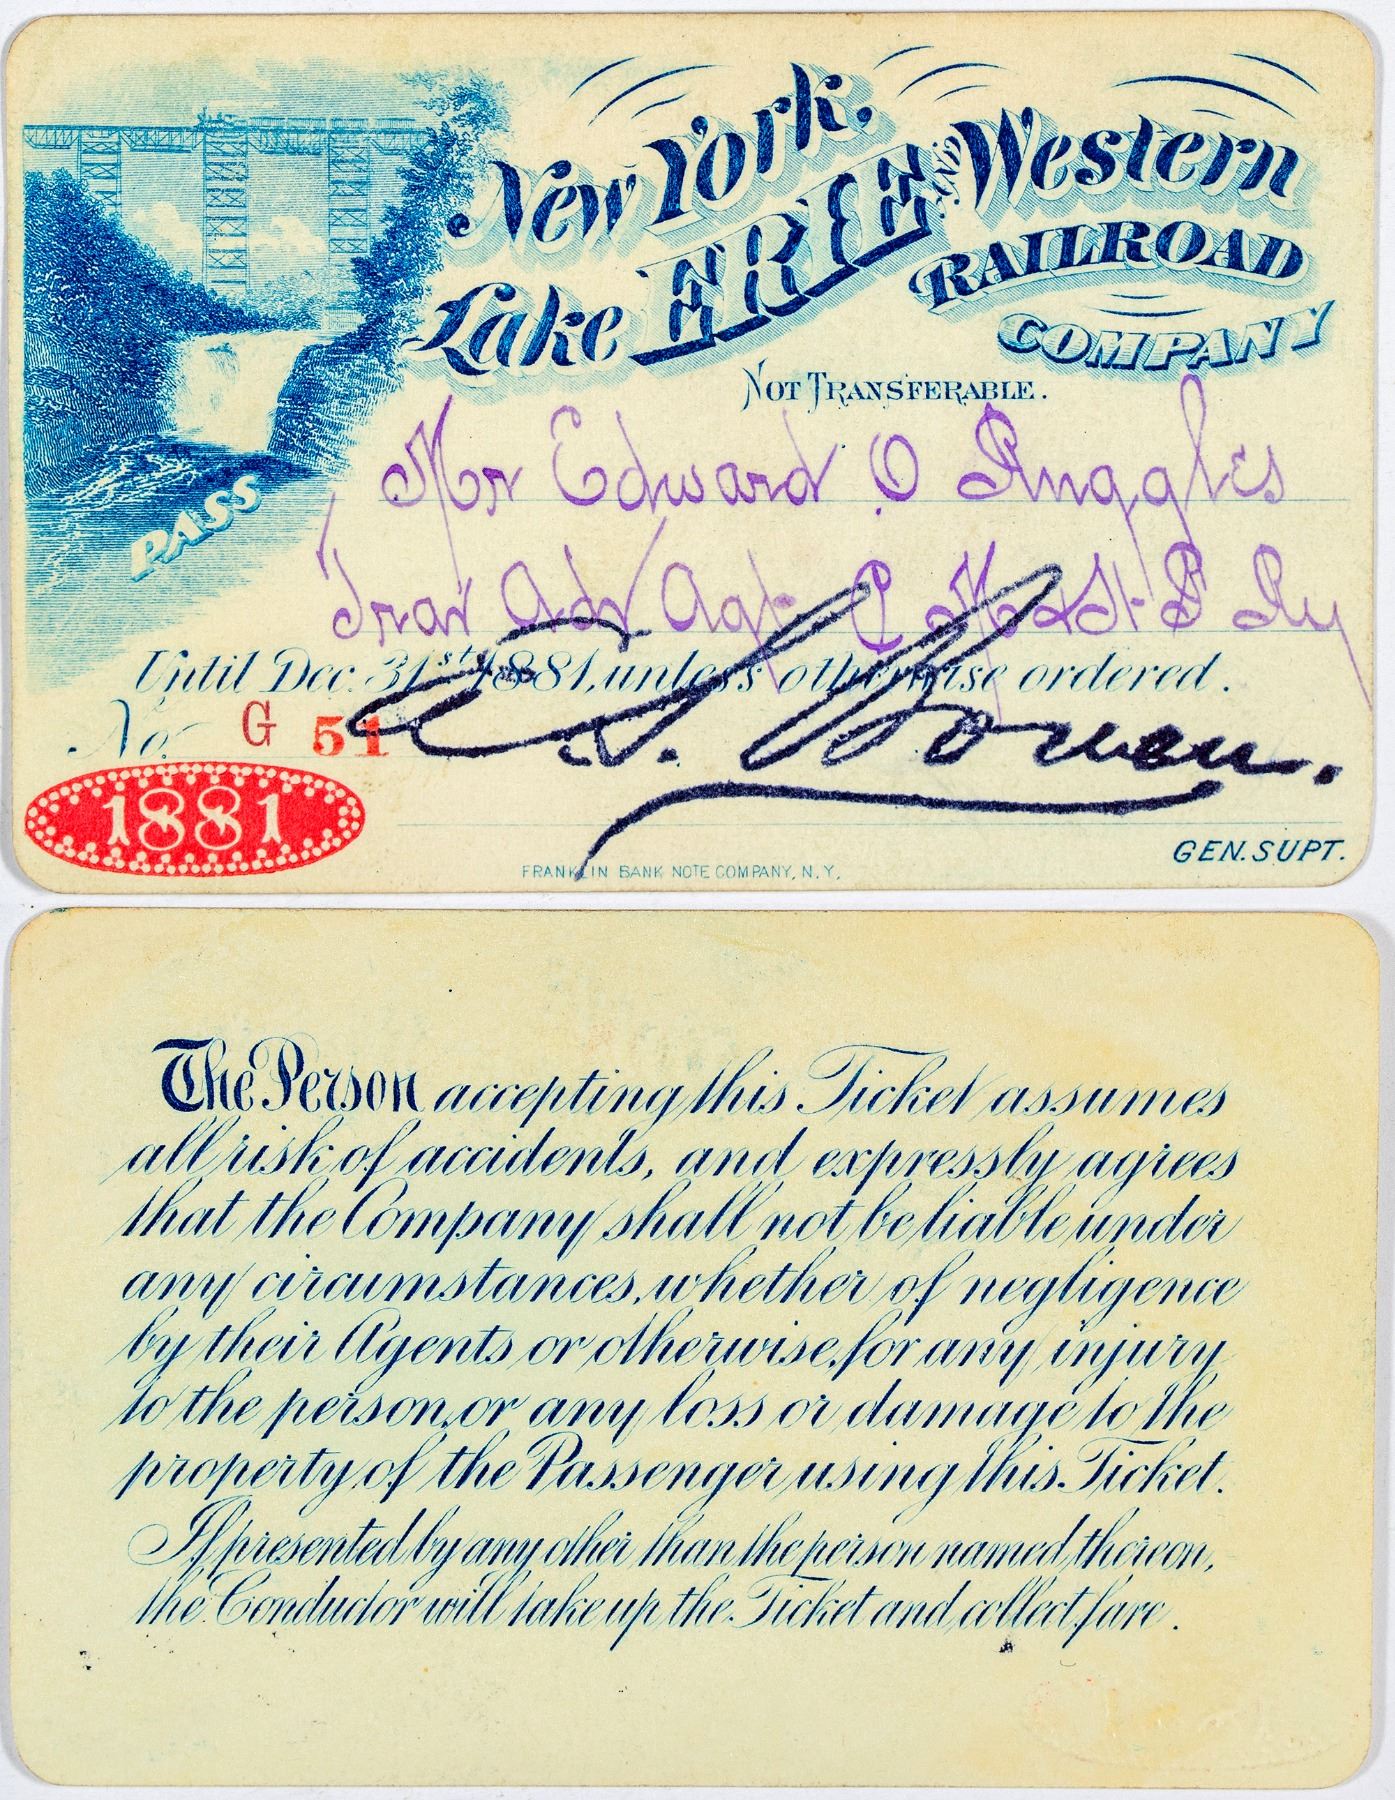 New York.
Lake ERIE AND Western
RAILROAD
COMPANY
NOT TRANSFERABLE.
Mr Edward O Ruggles
PASS
Trav Adv Agt C M & St P Ry
Until Dec. 31st 1881, unless otherwise ordered.
No. G 51
Bowen.
1881
GEN. SUPT.
FRANKLIN BANK NOTE COMPANY, N.Y.
The Person accepting this Ticket assumes
all risk of accidents, and expressly agrees
that the Company shall not be liable under
any circumstances, whether of negligence
by their Agents or otherwise, for any injury
to the person, or any loss or damage to the
property of the Passenger using this Ticket.
If presented by any other than the person named thereon,
the Conductor will take up the Ticket and collect fare.